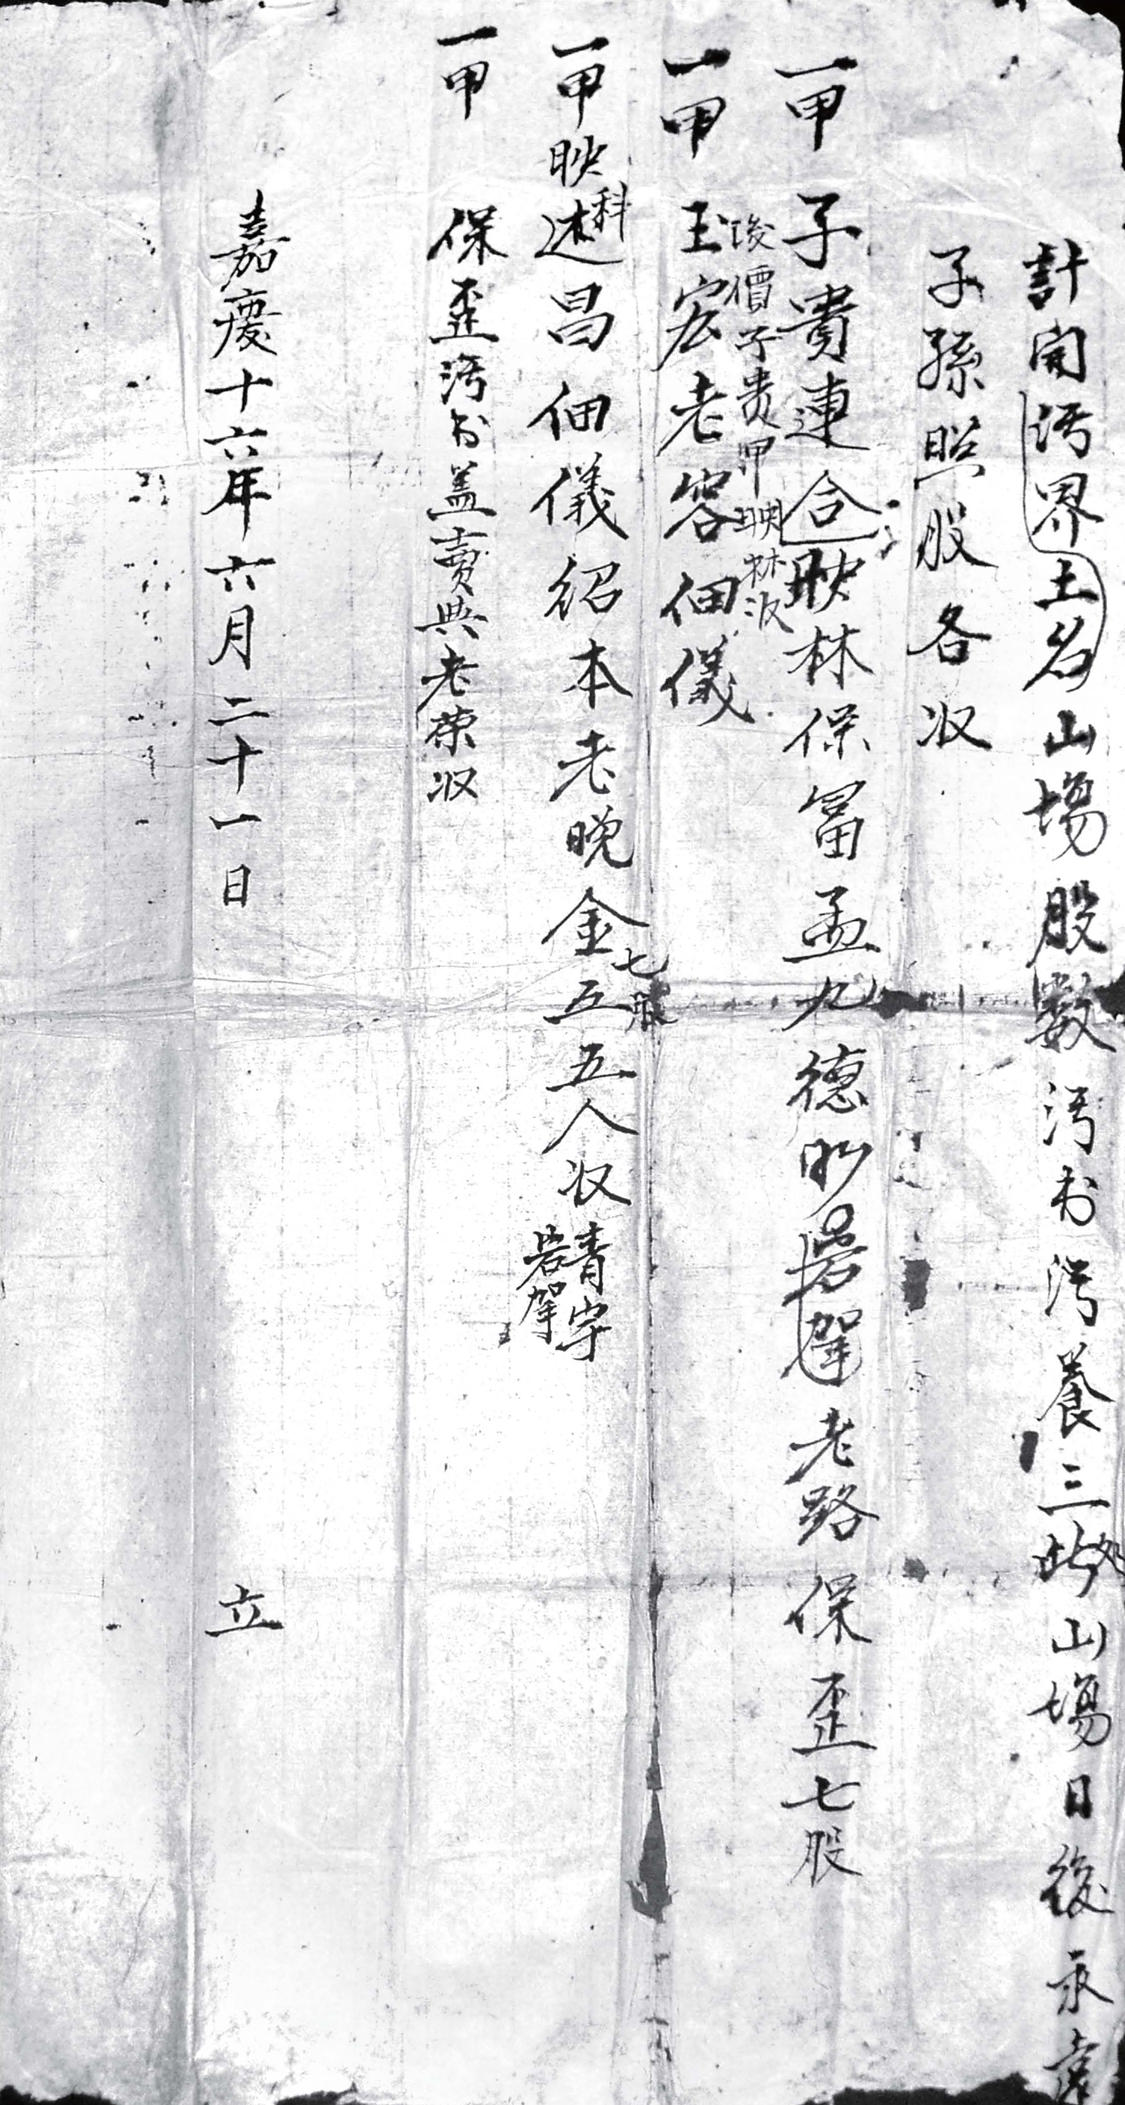 計開汚界土名山塲股數汚㘭汚養三此処山塲日後永遠
子孫照股各収
一甲子貴連合映林保冨孟九德明岩駕老路保歪七股
後價子贵甲映林収
一甲玉宏老容佃儀
一甲映述科昌佃儀绍本老晚金五五人収青字岩駕
七股
一甲保歪汚㘭盖賣與老荣収
嘉慶十六年六月二十一日立